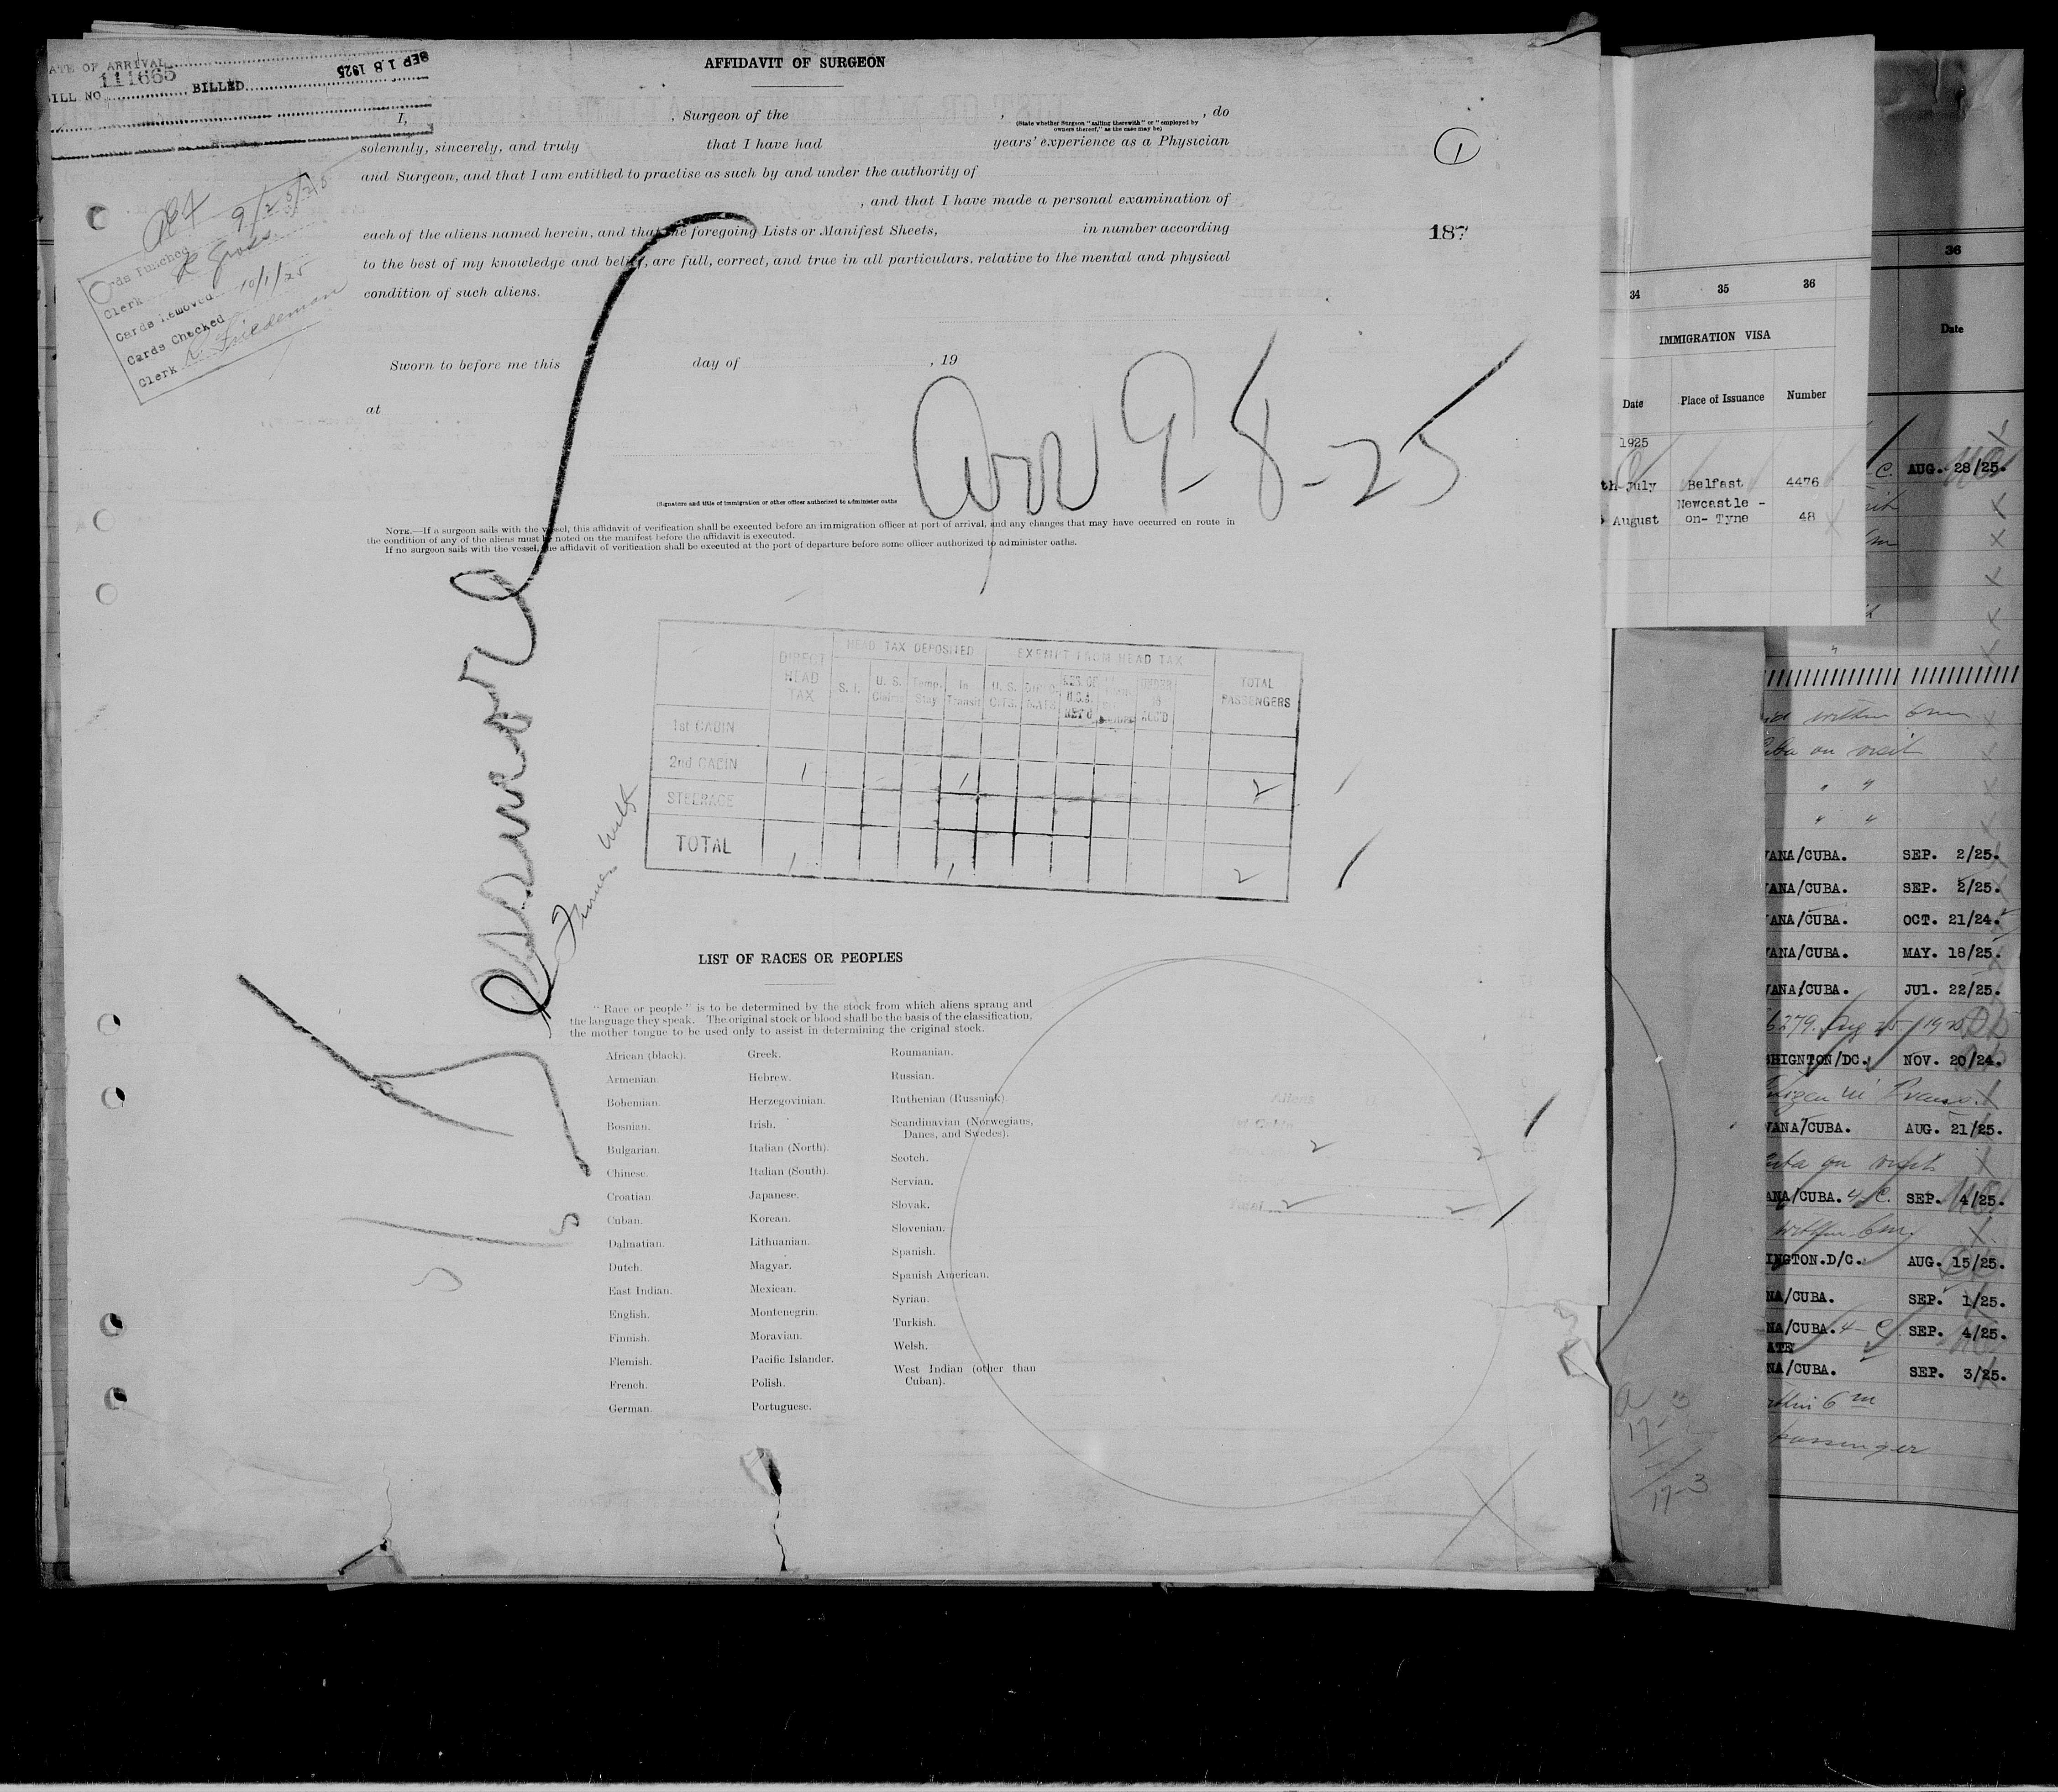 DATE OF ARRIVAL
BILL NO. 111665 BILLED SEP 18 1925
AFFIDAVIT OF SURGEON
I, , Surgeon of the , (State whether Surgeon "sailing therewith" or "employed by owners thereof," as the case may be) , do
solemnly, sincerely, and truly that I have had years' experience as a Physician
and Surgeon, and that I am entitled to practise as such by and under the authority of
, and that I have made a personal examination of
each of the aliens named herein, and that the foregoing Lists or Manifest Sheets, in number according
to the best of my knowledge and belief, are full, correct, and true in all particulars, relative to the mental and physical
condition of such aliens.
1
187
Cards Punched 9/25/25
Clerk L Gross
Cards Removed 10/1/25
Cards Checked
Clerk L. Friedeman
Sworn to before me this day of , 19
at
Arr 9-8-25
(Signature and title of immigration or other officer authorized to administer oaths
NOTE.—If a surgeon sails with the vessel, this affidavit of verification shall be executed before an immigration officer at port of arrival, and any changes that may have occurred en route in
the condition of any of the aliens must be noted on the manifest before the affidavit is executed.
If no surgeon sails with the vessel, the affidavit of verification shall be executed at the port of departure before some officer authorized to administer oaths.
DIRECT HEAD TAX
HEAD TAX DEPOSITED
EXEMPT FROM HEAD TAX
TOTAL PASSENGERS
S. I. U. S. Claims Temp. Stay In Transit U. S. CITS.
1st CABIN
2nd CABIN 1 1 2
STEERAGE
TOTAL 1 1 2
LIST OF RACES OR PEOPLES
"Race or people" is to be determined by the stock from which aliens sprang and
the language they speak. The original stock or blood shall be the basis of the classification,
the mother tongue to be used only to assist in determining the original stock.
African (black).
Armenian.
Bohemian.
Bosnian.
Bulgarian.
Chinese.
Croatian.
Cuban.
Dalmatian.
Dutch.
East Indian.
English.
Finnish.
Flemish.
French.
German.
Greek.
Hebrew.
Herzegovinian.
Irish.
Italian (North).
Italian (South).
Japanese.
Korean.
Lithuanian.
Magyar.
Mexican.
Montenegrin.
Moravian.
Pacific Islander.
Polish.
Portuguese.
Roumanian.
Russian.
Ruthenian (Russniak).
Scandinavian (Norwegians,
Danes, and Swedes).
Scotch.
Servian.
Slovak.
Slovenian.
Spanish.
Spanish American.
Syrian.
Turkish.
Welsh.
West Indian (other than
Cuban).
Aliens
2 2
Total 2 2
34 35 36
IMMIGRATION VISA
Date Place of Issuance Number
1925
July Belfast 4476
Newcastle -
August on- Tyne 48
17-3
17-3
36
Date
C. AUG. 28/25.
within 6m
Cuba on visit
" "
" "
VANA/CUBA. SEP. 2/25.
VANA/CUBA. SEP. 2/25.
VANA/CUBA. OCT. 21/24.
VANA/CUBA. MAY. 18/25.
VANA/CUBA. JUl. 22/25.
6279. Aug 25/1925
SHIGNTON/DC. NOV. 20/24.
Citizen in Transit
VANA/CUBA. AUG. 21/25.
Cuba on visit
ANA/CUBA. 4-C. SEP. 4/25.
within 6m.
INGTON.D/C. AUG. 15/25.
NA/CUBA. SEP. 1/25.
NA/CUBA. 4-C SEP. 4/25.
ATE
NA/CUBA. SEP. 3/25.
within 6m
passenger